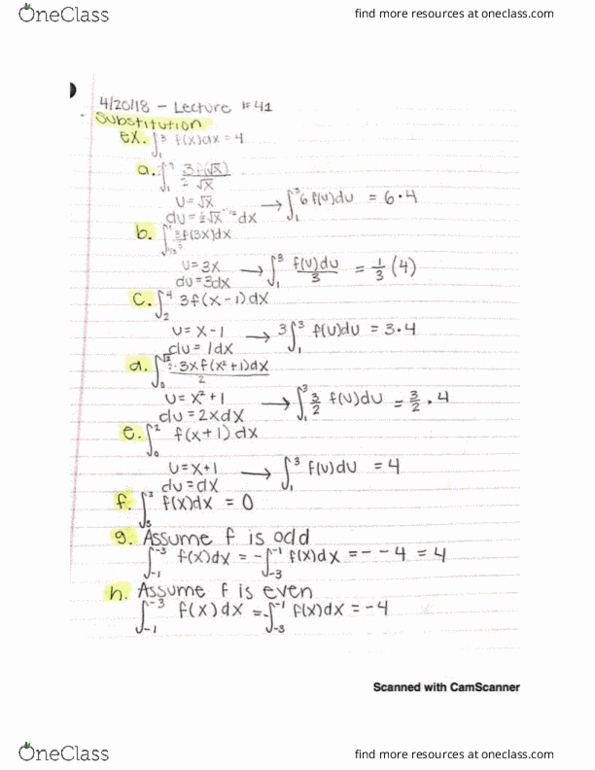 OneClass
find more resources at oneclass.com
4/20/18 - Lecture #41
Substitution
ex. ∫₁³ f(x)dx = 4
a. ∫₁⁹ 3f(√x)/2√x
u = √x → ∫₁³ 6 f(u)du = 6·4
du = ½√x dx
b. f(3x)dx
u = 3x → ∫₁³ f(u)du/3 = 1/3 (4)
du = 3dx
c. ∫₂⁴ 3f(x-1)dx
u = x-1 → 3∫₁³ f(u)du = 3·4
du = 1dx
d. 3xf(x²+1)dx/2
u = x²+1 → ∫₁³ 3/2 f(u)du = 3/2 · 4
du = 2xdx
e. ∫₀² f(x+1)dx
u = x+1 → ∫₁³ f(u)du = 4
du = dx
f. f(x)dx = 0
g. Assume f is odd
∫₋₁⁻³ f(x)dx = -∫₋₃⁻¹ f(x)dx = - -4 = 4
h. Assume f is even
∫₋₁⁻³ f(x)dx = -∫₋₃⁻¹ f(x)dx = -4
Scanned with CamScanner
OneClass
find more resources at oneclass.com